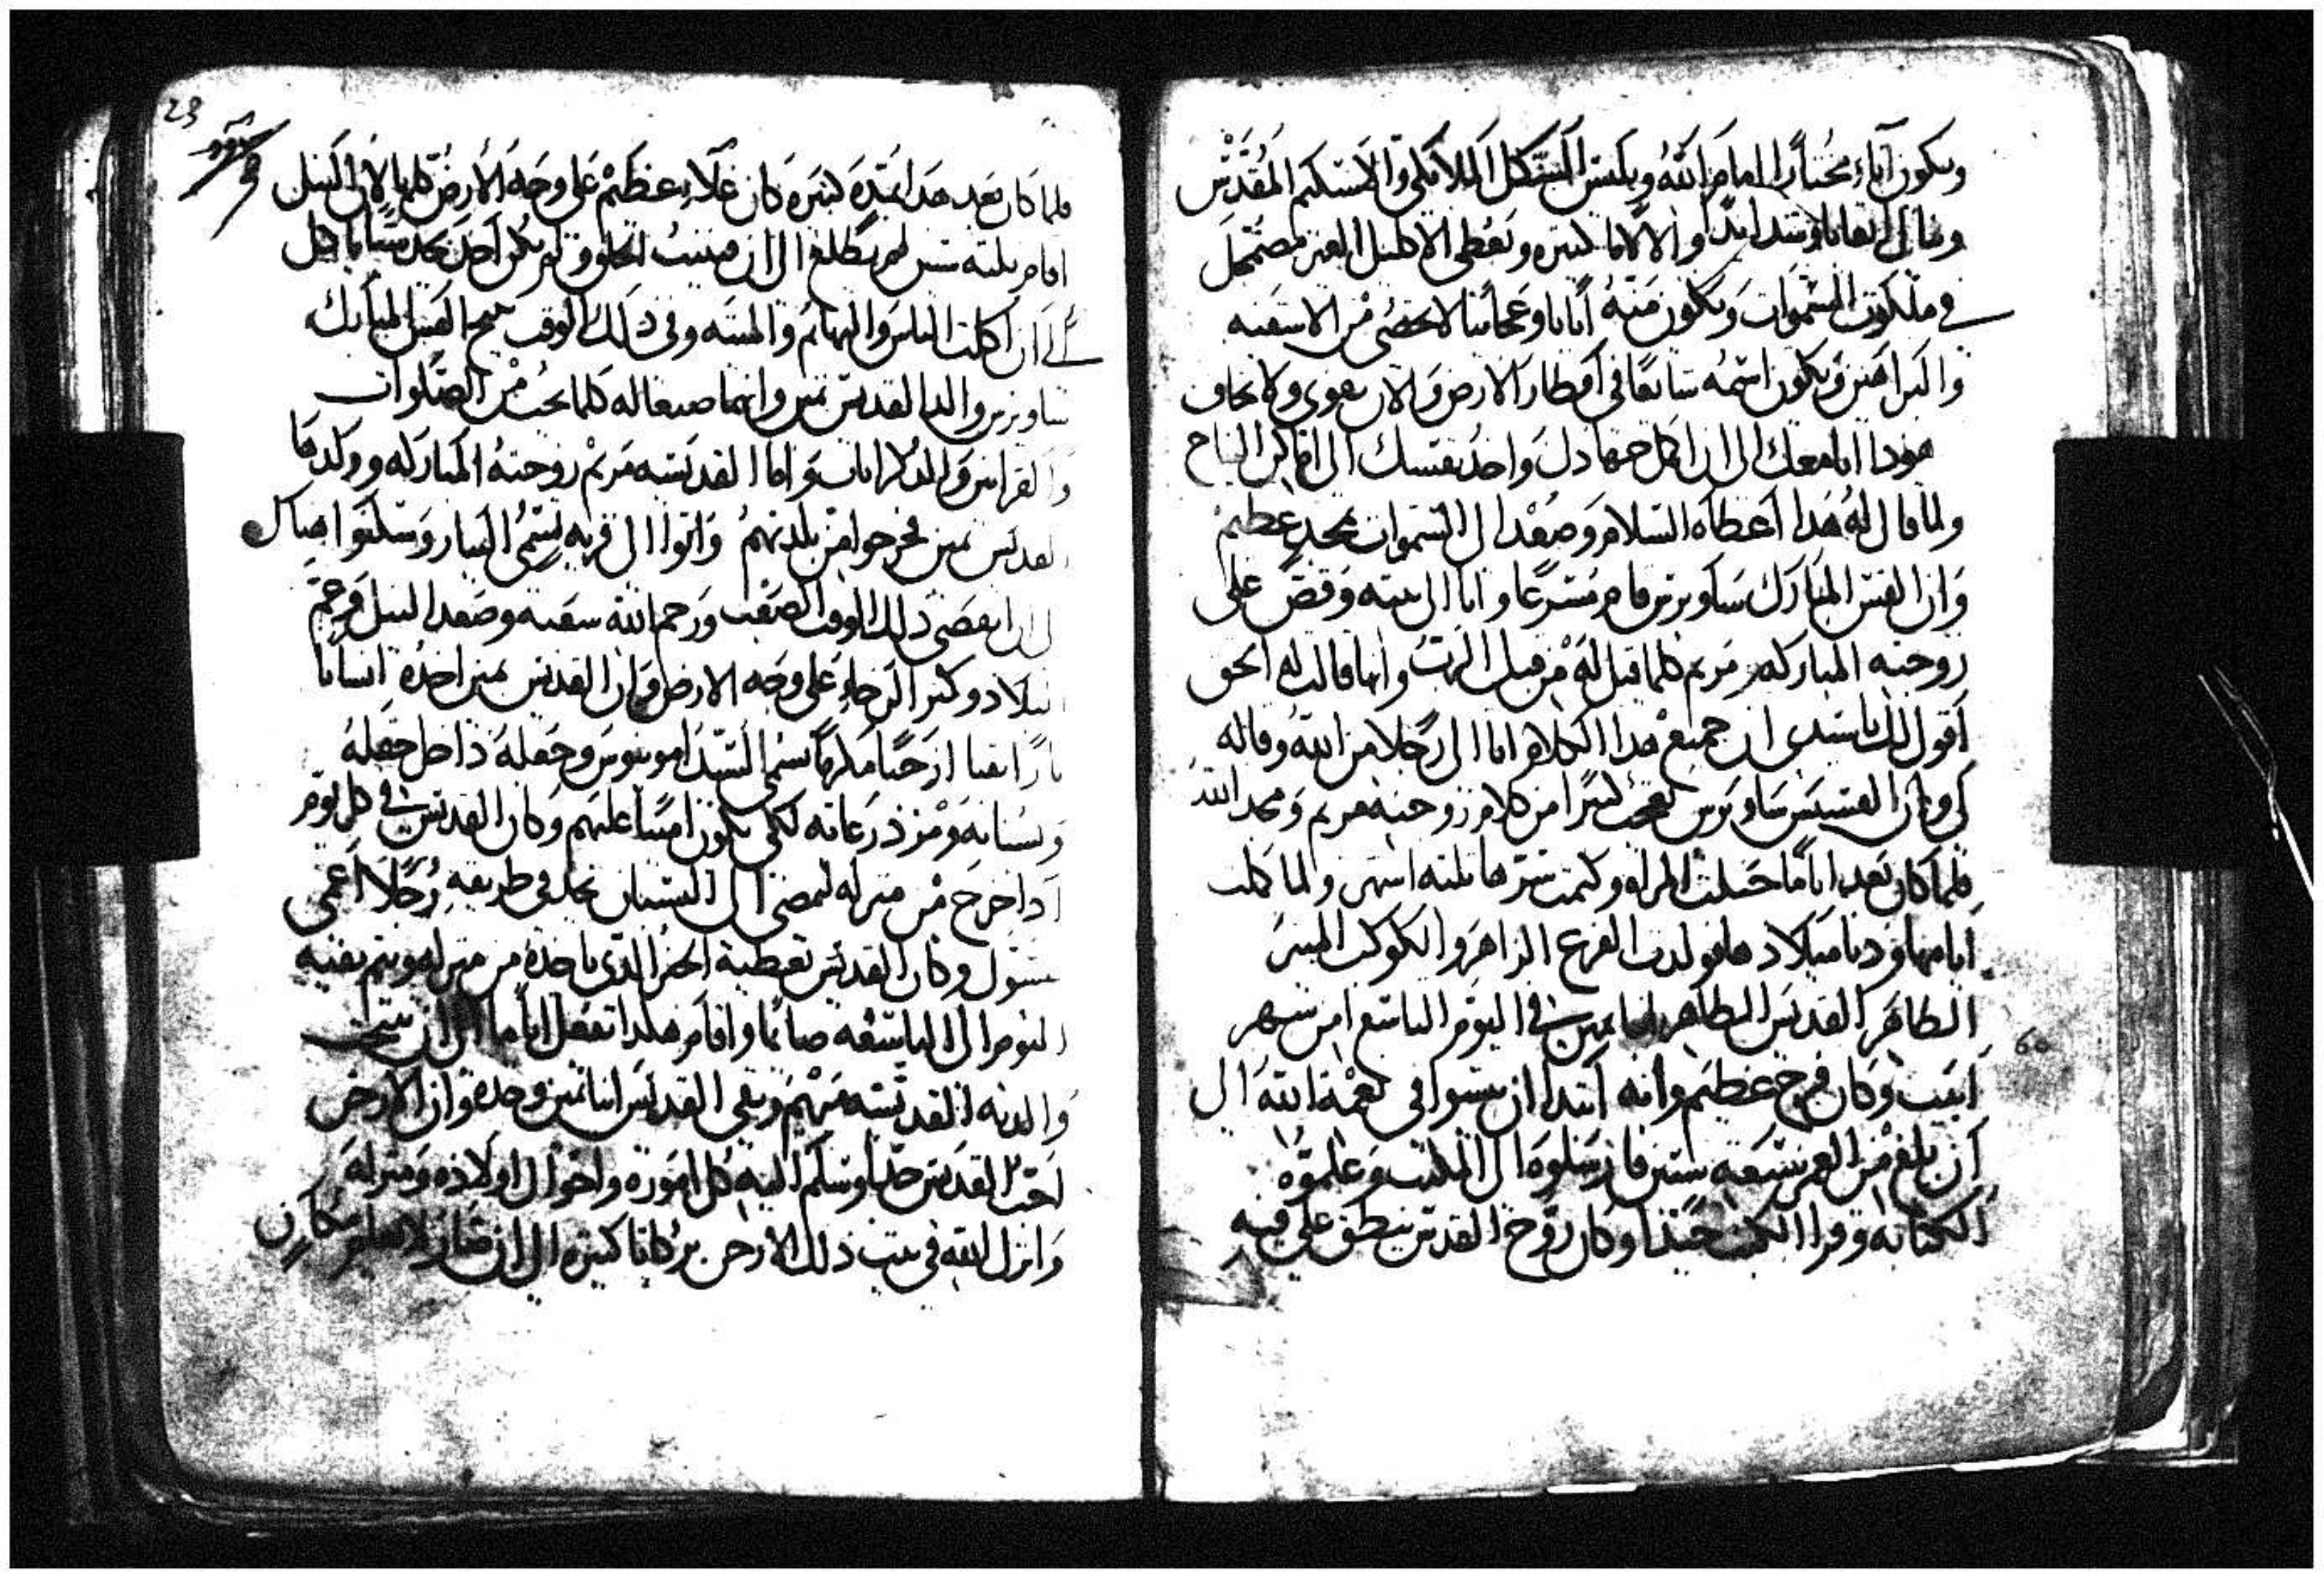 ويكون اناء مختارا امام الله ويلبس الشكل الملايكي والاسكيم المقدس
وينال اتعابا وشدايد والالاما كثيره ويعطى الاكليل الغير مضمحل
في ملكوت السموات ويكون منه اياتا وعجايبا لا تحصى من الاشفيه
والبراهين ويكون اسمه شايعا في اقطار الارض والان تقوى ولا تخاف
هودا انا معك الى ان اكمل جهادك واخد نفسك الى اماكن النياح
ولما قال له هدا اعطاه السلام وصعد الى السموات بمجد عظيم
وان القس المبارك ساويرس قام مسرعا واتا الى بيته وقص على
زوجته المباركه مريم كلما قيل له من قبل الرب وانها قالت له الحق
اقول لك يا سيدي ان جميع هدا الكلام اتا الى رجلا من الله وقاله
لي وان القسيس ساويرس تعجب كثيرا من كلام زوجته مريم ومجد الله
فلما كان بعد اياما حبلت المراه وكتمت سترها تلته اشهر ولما كملت
ايامها ودنا ميلادها فولدت الفرع الزاهر والكوكب المنير
الطاهر القديس الطاهر انبا نمين في اليوم التاسع من شهر
ابيب وكان فرح عظيم وانه ابتدا ان ينشوا في نعمة الله الى
ان بلغ من العمر سبعه سنين فارسلوه الى المكتب وعلموه
الكتابه وقرا الكتب جيدا وكان روح القدس ينطق على فيه
23
فلما كان بعد هدا بمده كبيره كان غلاء عظيم على وجه الارض كلها لان النيل
اقام تلته سنين لم يطلع الى ان فنيت الخلق ولم يكن احد يجد شيا ياكل
الى ان اكلت الناس والبهايم والميته وفي دلك الوقت تنيح القس المبارك
ساويرس والد القديس نمين وانهما صنعا له كلما يجب من الصلوات
والقراين والتدكارات واما القديسه مريم زوجته المباركه وولدها
القديس نمين فخرجوا من بلدتهم واتوا الى قريه تسمى البيار وسكنوا هناك
الى ان انقضى دلك الوقت الصعب ورحم الله شعبه وصعد النيل فرحم
البلاد وكثر الرخاء على وجه الارض وان القديس نمين اخده انسانا
بارا تقيا ارخنا مكرما يسمى السيد امونيوس وجعله داخل حقله
وبستانه ومزدرعاته لكي يكون امينا عليهم وكان القديس في كل يوم
ادا خرج من منزله ليمضي الى البستان يجد في طريقه رجلا اعمى
يسول وكان القديس يعطيه الخبز الدي ياخده من منزله ويتم بقيه
اليوم الى التاسعه صايما واقام هكدا يفعل اياما الى ان تنيحت
والدته القديسه مريم وبقي القديس انبا نمين وحده وان الارخن
احب القديس جدا وسلم اليه كل اموره واحوال اولاده ومنزله
وانزل الله في بيت دلك الارخن بركاتا كثيره الى ان
60